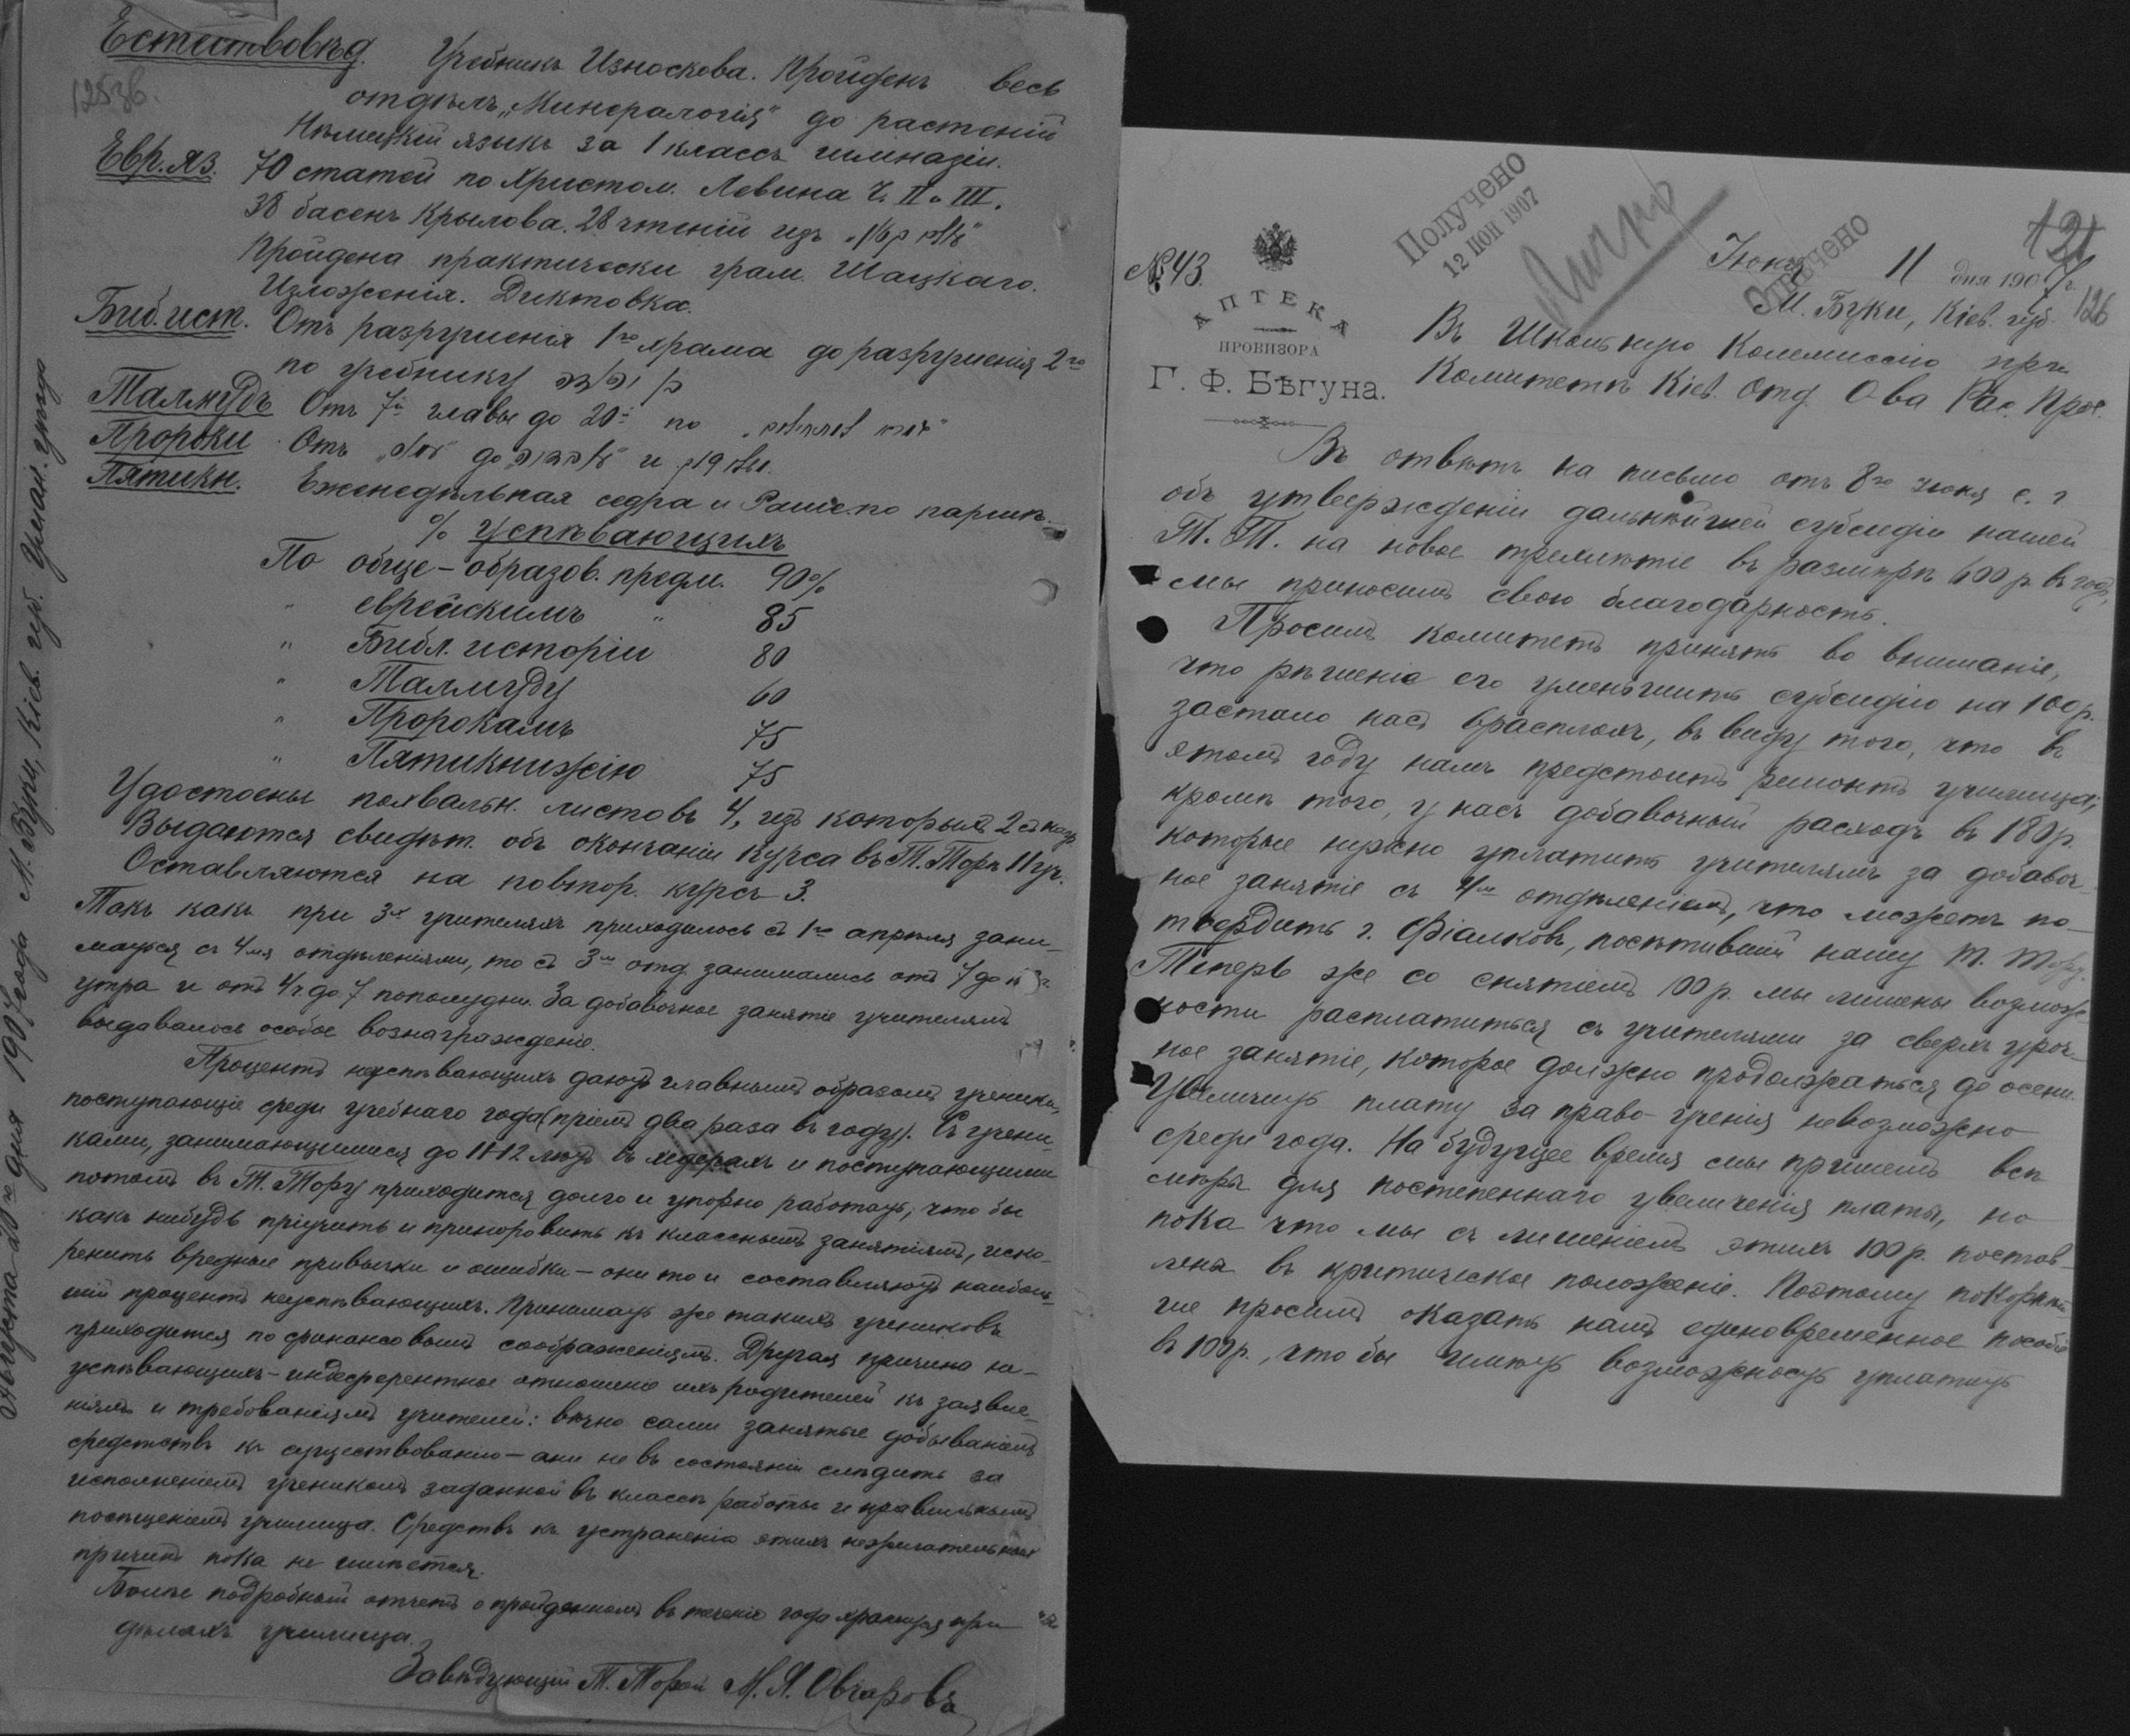 Естествовѣд. Учебникъ Износкова. Пройденъ весь
125 об.
отдѣлъ „Минералогія" до растеній
Нѣмецкій языкъ за 1 классъ гимназіи.
Евр. яз. 70 статей по Христом. Левина Ч. II и III.
38 басенъ Крылова. 28 чтеній изъ
Пройдена практически грам. Шацкаго.
Изложенія. Диктовка.
Биб. ист. Отъ разрушенія 1го храма до разрушенія 2го
по учебнику
Талмудъ Отъ 7й главы до 20й по
Пророки Отъ до и
Пятикн. Еженедѣльная седра и Раши по паршѣ.
% успѣвающихъ
По обще-образов. предм. 90%
" еврейскимъ " 85
" Библ. исторіи 80
" Талмуду 60
" Пророкамъ 75
" Пятикнижію 75
Удостоены похвальн. листовъ 4, изъ которыхъ 2 съ нагр.
Выдаются свидѣт. объ окончаніи курса въ Т. Торѣ 11 уч.
Оставляются на повтор. курсъ 3.
Такъ какъ при 3х учителяхъ приходилось съ 1го апрѣля зани-
маться съ 4мя отдѣленіями, то съ 3мъ отд. занимались отъ 7 до
утра и отъ 4 ч. до 7 пополудни. За добавочное занятіе учителямъ
выдавалось особое вознагражденіе.
Процентъ неуспѣвающихъ даютъ главнымъ образомъ ученики,
поступающіе среди учебнаго года (пріемъ два раза въ году). Съ учени-
ками, занимающимися до 11-12 лѣтъ въ хедерахъ и поступающими
потомъ въ Т. Тору приходится долго и упорно работать, что бы
какъ нибудь пріучить и приноровить къ класснымъ занятіямъ, иско-
ренить вредные привычки и ошибки - они то и составляютъ наиболь-
шій процентъ неуспѣвающихъ. Принимать же такихъ учениковъ
приходится по финансовымъ соображеніямъ. Другая причина не-
успѣвающихъ - индеферентное отношеніе ихъ родителей къ заявле-
ніямъ и требованіямъ учителей: вѣчно сами занятые добываніемъ
средствъ къ существованію - они не въ состояніи слѣдить за
исполненіемъ ученикомъ заданной въ классѣ работы и правильнымъ
посѣщеніемъ училища. Средствъ къ устраненію этихъ нежелательныхъ
причинъ пока не имѣется.
Болѣе подробный отчетъ о пройденномъ въ теченіе года хранится при
дѣлахъ училища.
Завѣдующій Т. Торой М. Я. Овчаровъ
Августа 20го дня 1907 года М. Буки, Кіев. губ. Уман. уѣзда
Получено
12 ІЮН 1907
Отвѣчено
121
126
№ 43.
АПТЕКА
ПРОВИЗОРА
Г. Ф. БѢгуна.
Іюня 11 дня 1907 г.
М. Буки, Кіев. губ.
Въ Школьную Коммиссію при
Комитетѣ Кіев. Отд. О-ва Рас. Прос.
Въ отвѣтъ на письмо отъ 8го іюня с. г.
объ утвержденіи дальнѣйшей субсидіи нашей
Т. Т. на новое трехлѣтіе въ размѣрѣ 600 р. въ годъ,
мы приносимъ свою благодарность.
Просимъ комитетъ принять во вниманіе,
что рѣшеніе его уменьшить субсидію на 100 р.
застало насъ врасплохъ, въ виду того, что въ
этомъ году намъ предстоитъ ремонтъ училища;
кромѣ того, у насъ добавочный расходъ въ 180 р.
которые нужно уплатить учителямъ за добавоч-
ное занятіе съ 4мъ отдѣленіемъ, что можетъ по-
твердить г. Фіалковъ, посѣтившій нашу Т. Тору.
Теперь же со снятіемъ 100 р. мы лишены возмож-
ности расплатиться съ учителями за сверхъ уроч-
ное занятіе, которое должно продолжаться до осени.
Увеличить плату за право-ученія невозможно
среди года. На будущее время мы примемъ всѣ
мѣры для постепеннаго увеличенія платы, но
пока что мы съ лишеніемъ этихъ 100 р. постав-
лены въ критическое положеніе. Поэтому покорнѣй-
ше просимъ оказать намъ единовременное пособіе
въ 100 р., что бы имѣть возможность уплатить